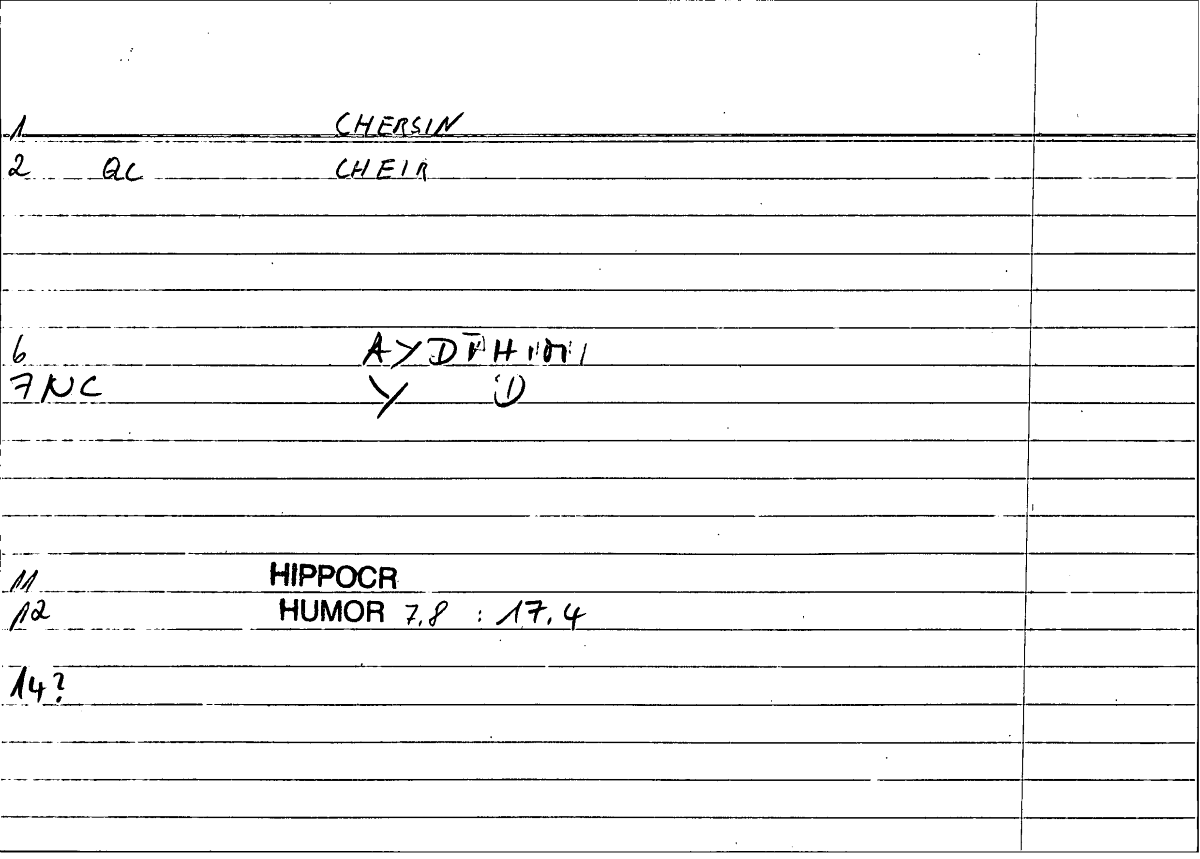 1 CHERSIN
2 QC CHEIR
6
7 NC Y D
11 HIPPOCR
12 HUMOR 7,8 : 17.4
14?